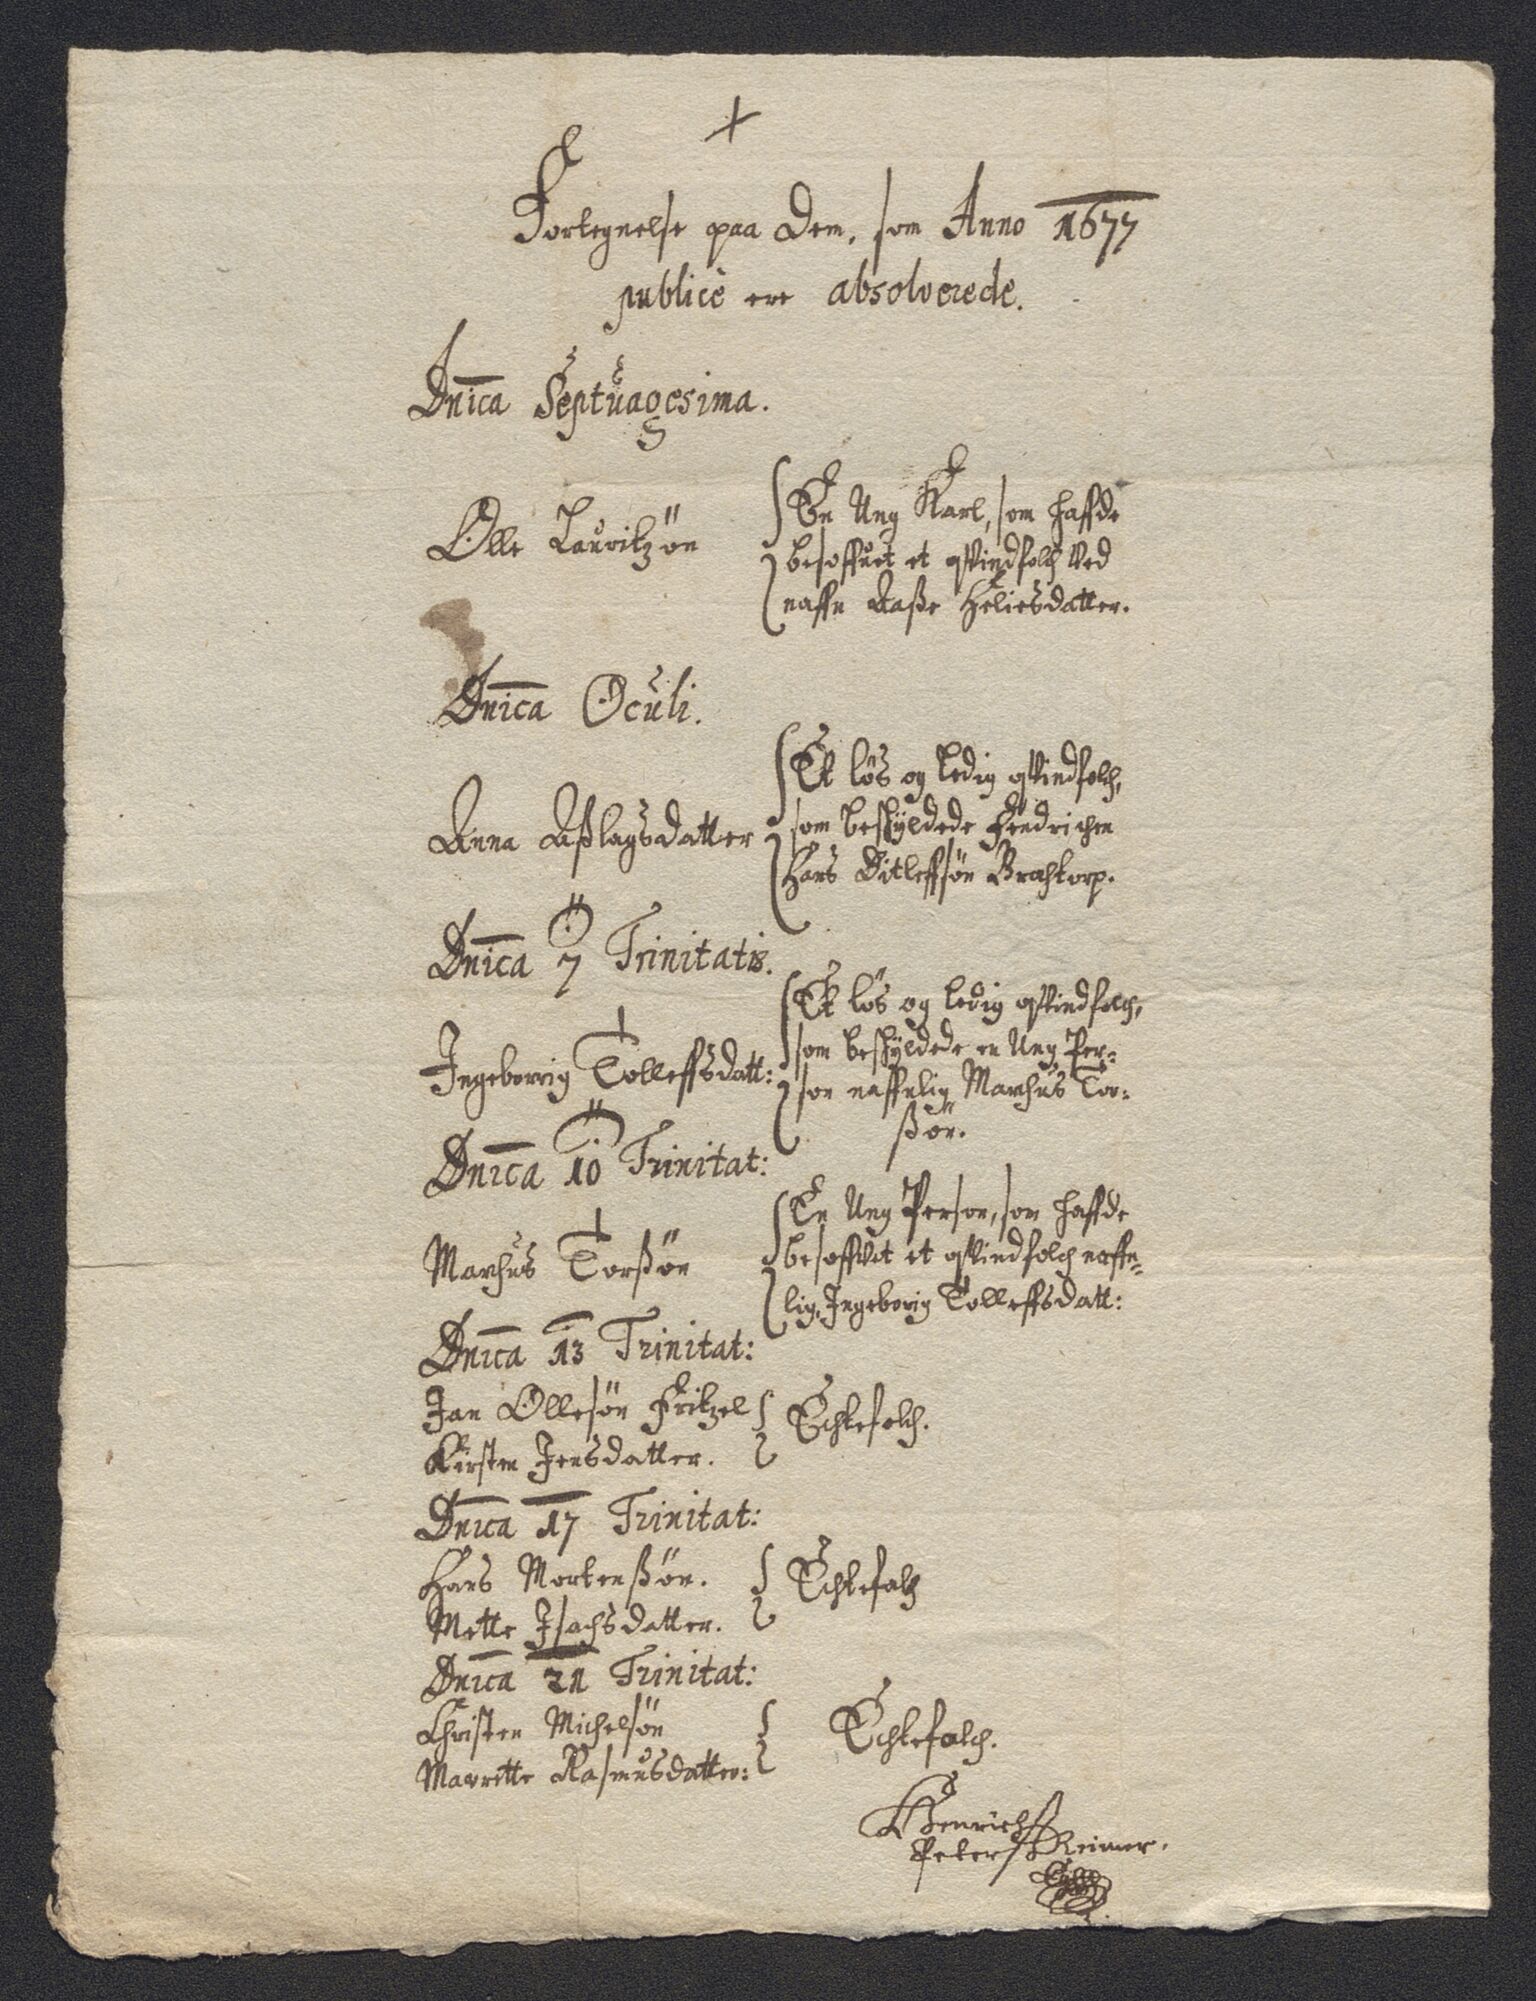 Fortegnelse paa Dem, som Anno 1677
publicè ere absolverede.
Dnica Septuagesima.
Olle Lauritzön
En Ung Karl, som haffde
besoffuet et qvindfolch ved
naffn Aaße Heliesdatter.
Dnica Oculi.
Anna Aßlagsdatter
Et lös og ledig qvindfolch,
som beskyldede Fendrichen
Hans Ditleffsön Brochtorp.
Dnica 7 Trinitatis.
Ingeborrig Tolleffsdatt:
Et lös og ledig qvindfolch,
som beskyldede en Ung Per-
son naffnlig Marchus Tor-
ßön.
Dnica 10 Trinitat:
Marchus Torßön
En Ung Person, som haffde
besoffvet et qvindfolch naffn-
lig, Ingeborig Tolleffsdatt:
Dnica 13 Trinitat:
Jan Ollesön Fritzel
Kirsten Jensdatter.
Echtefolch.
Dnica 17 Trinitat:
Hans Mortenßön.
Mette Isachsdatter.
Echtefolch
Dnica 21 Trinitat:
Christen Michelsön
Marrette Rasmusdatter:
Echtefolch.
Henrich
Peterß Reimer.